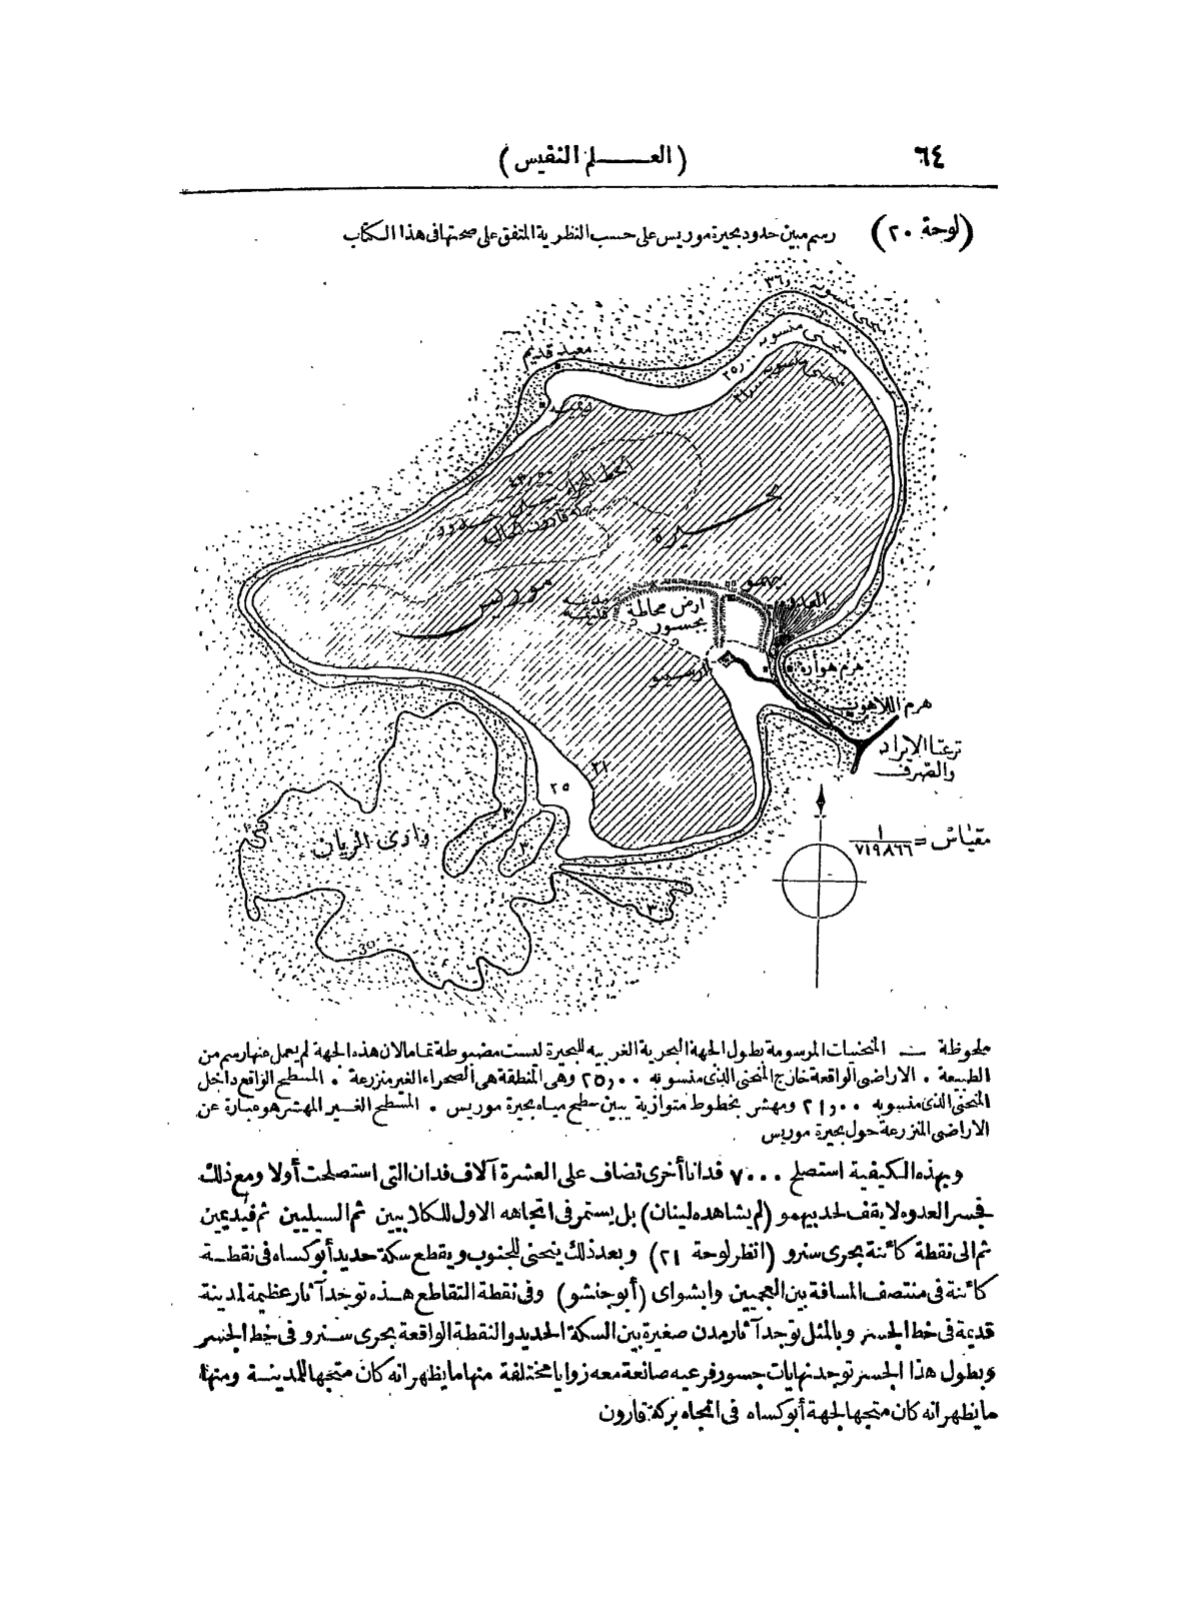 ٦٤
(العـــلم النفيس)
(لوحة ٢٠) رسم مبين حدود بحيرة موريس على حسب النظرية المتفق على صحتها فى هذا الكتاب
منحنى منسوبه ٣٦,
منحنى منسوبه ٢٥,٠٠
منحنى منسوبه ٢١,٠٠
معبد قديم
ديميه
حدود
بركة قارون الحالى
بحيرة
موريس
مدينة قديمة
ارض محاطة بجسور
بيهمو
ارسينو
هرم هواره
هرم اللاهون
ترعتا الايراد والصرف
٢١
٢٥
٣٠
٣٠
٣٠
٣٥
وادى الريان
مقياس = ١/٧١٩٨٦٦
ملحوظة — المنحنيات المرسومة بطول الجهة البحرية الغربيه للبحيرة ليست مضبوطة تماما لان هذه الجهة لم يعمل منها رسم من
الطبيعة . الاراضى الواقعة خارج المنحنى الذى منسوبه ٢٥,٠٠ وهى المنطقة هى الصحراء الغير منزرعة . المسطح الواقع داخل
المنحنى الذى منسوبه ٢١,٠٠ ومهشر بخطوط متوازية يبين سطح مياه بحيرة موريس . المسطح الغـــير المهشر هو عبارة عن
الاراضى المنزرعة حول بحيرة موريس
وبهذه الكيفية استصلح ٧٠٠٠ فدانا أخرى تضاف على العشرة آلاف فدان التى استصلحت أولا ومع ذلك
فجسر العدوه لا يقف لحد بيهمو (لم يشاهده لينان) بل يستمر فى اتجاهه الاول للكلابيين ثم السيليين ثم فيديمين
ثم الى نقطة كائنة بحرى سنرو (انظر لوحة ٢١) وبعد ذلك ينحنى للجنوب ويقطع سكة حديد أبو كساه فى نقطــة
كائنة فى منتصف المسافة بين العجميين وابشواى (أبو جنشو) وفى نقطة التقاطع هــذه توجد آثار عظيمة لمدينة
قديمة فى خط الجسر وبالمثل توجد آثار مدن صغيرة بين السكة الحديد والنقطة الواقعة بحرى ســنرو فى خط الجسر
وبطول هذا الجسر توجد نهايات جسور فرعيه صانعة معه زوايا مختلفة منها ما يظهر انه كان متجها للمدينــة ومنها
ما يظهر انه كان متجها لجهة أبو كساه فى اتجاه بركة قارون